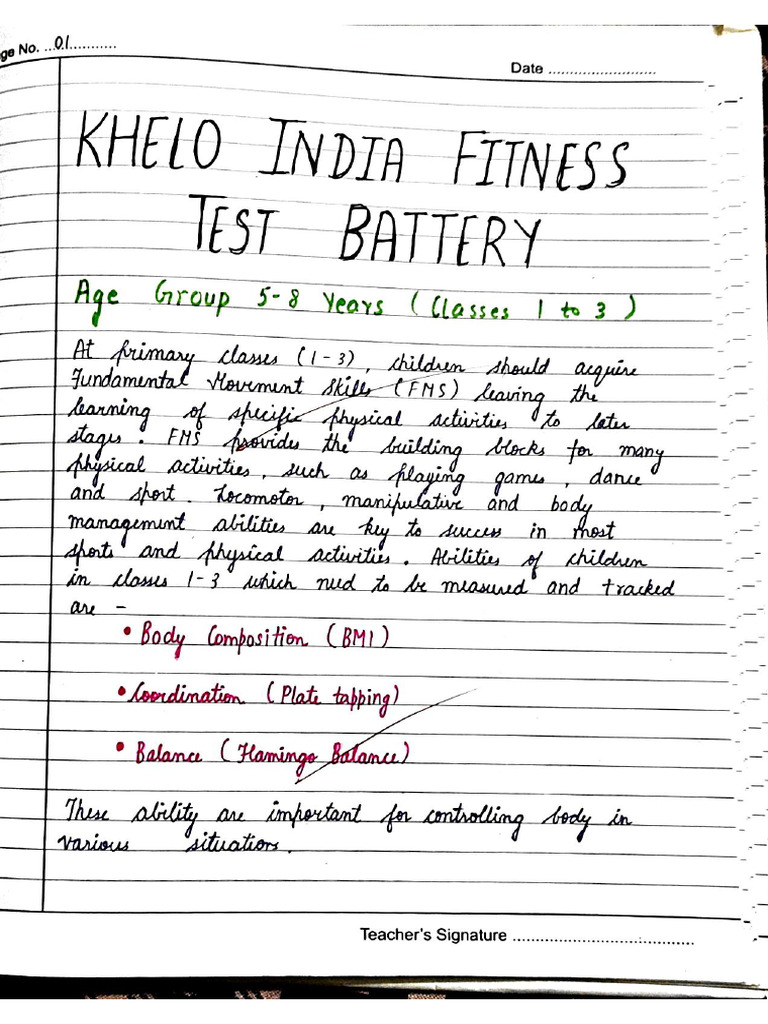 ge No. ...01...........
Date ..........................
KHELO INDIA FITNESS
TEST BATTERY
Age Group 5-8 Years (Classes 1 to 3)
At primary classes (1-3), children should acquire
Fundamental Movement Skills (FMS) leaving the
learning of specific physical activities to later
stages. FMS provides the building blocks for many
physical activities, such as playing games, dance
and sport. Locomotor, manipulative and body
management abilities are key to success in most
sports and physical activities. Abilities of children
in classes 1-3 which need to be measured and tracked
are -
• Body Composition (BMI)
• Coordination (Plate tapping)
• Balance (Flamingo Balance)
These ability are important for controlling body in
various situations.
Teacher's Signature ....................................